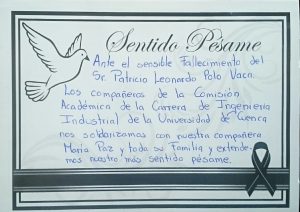 Sentido Pésame
Ante el sensible Fallecimiento del
Sr. Patricio Leonardo Polo Vaca.
Los compañeros de la Comisión
Académica de la Carrera de Ingeniería
Industrial de la Universidad de Cuenca
nos solidarizamos con nuestra compañera
María Paz y toda su Familia y extende-
mos nuestro más sentido pésame.